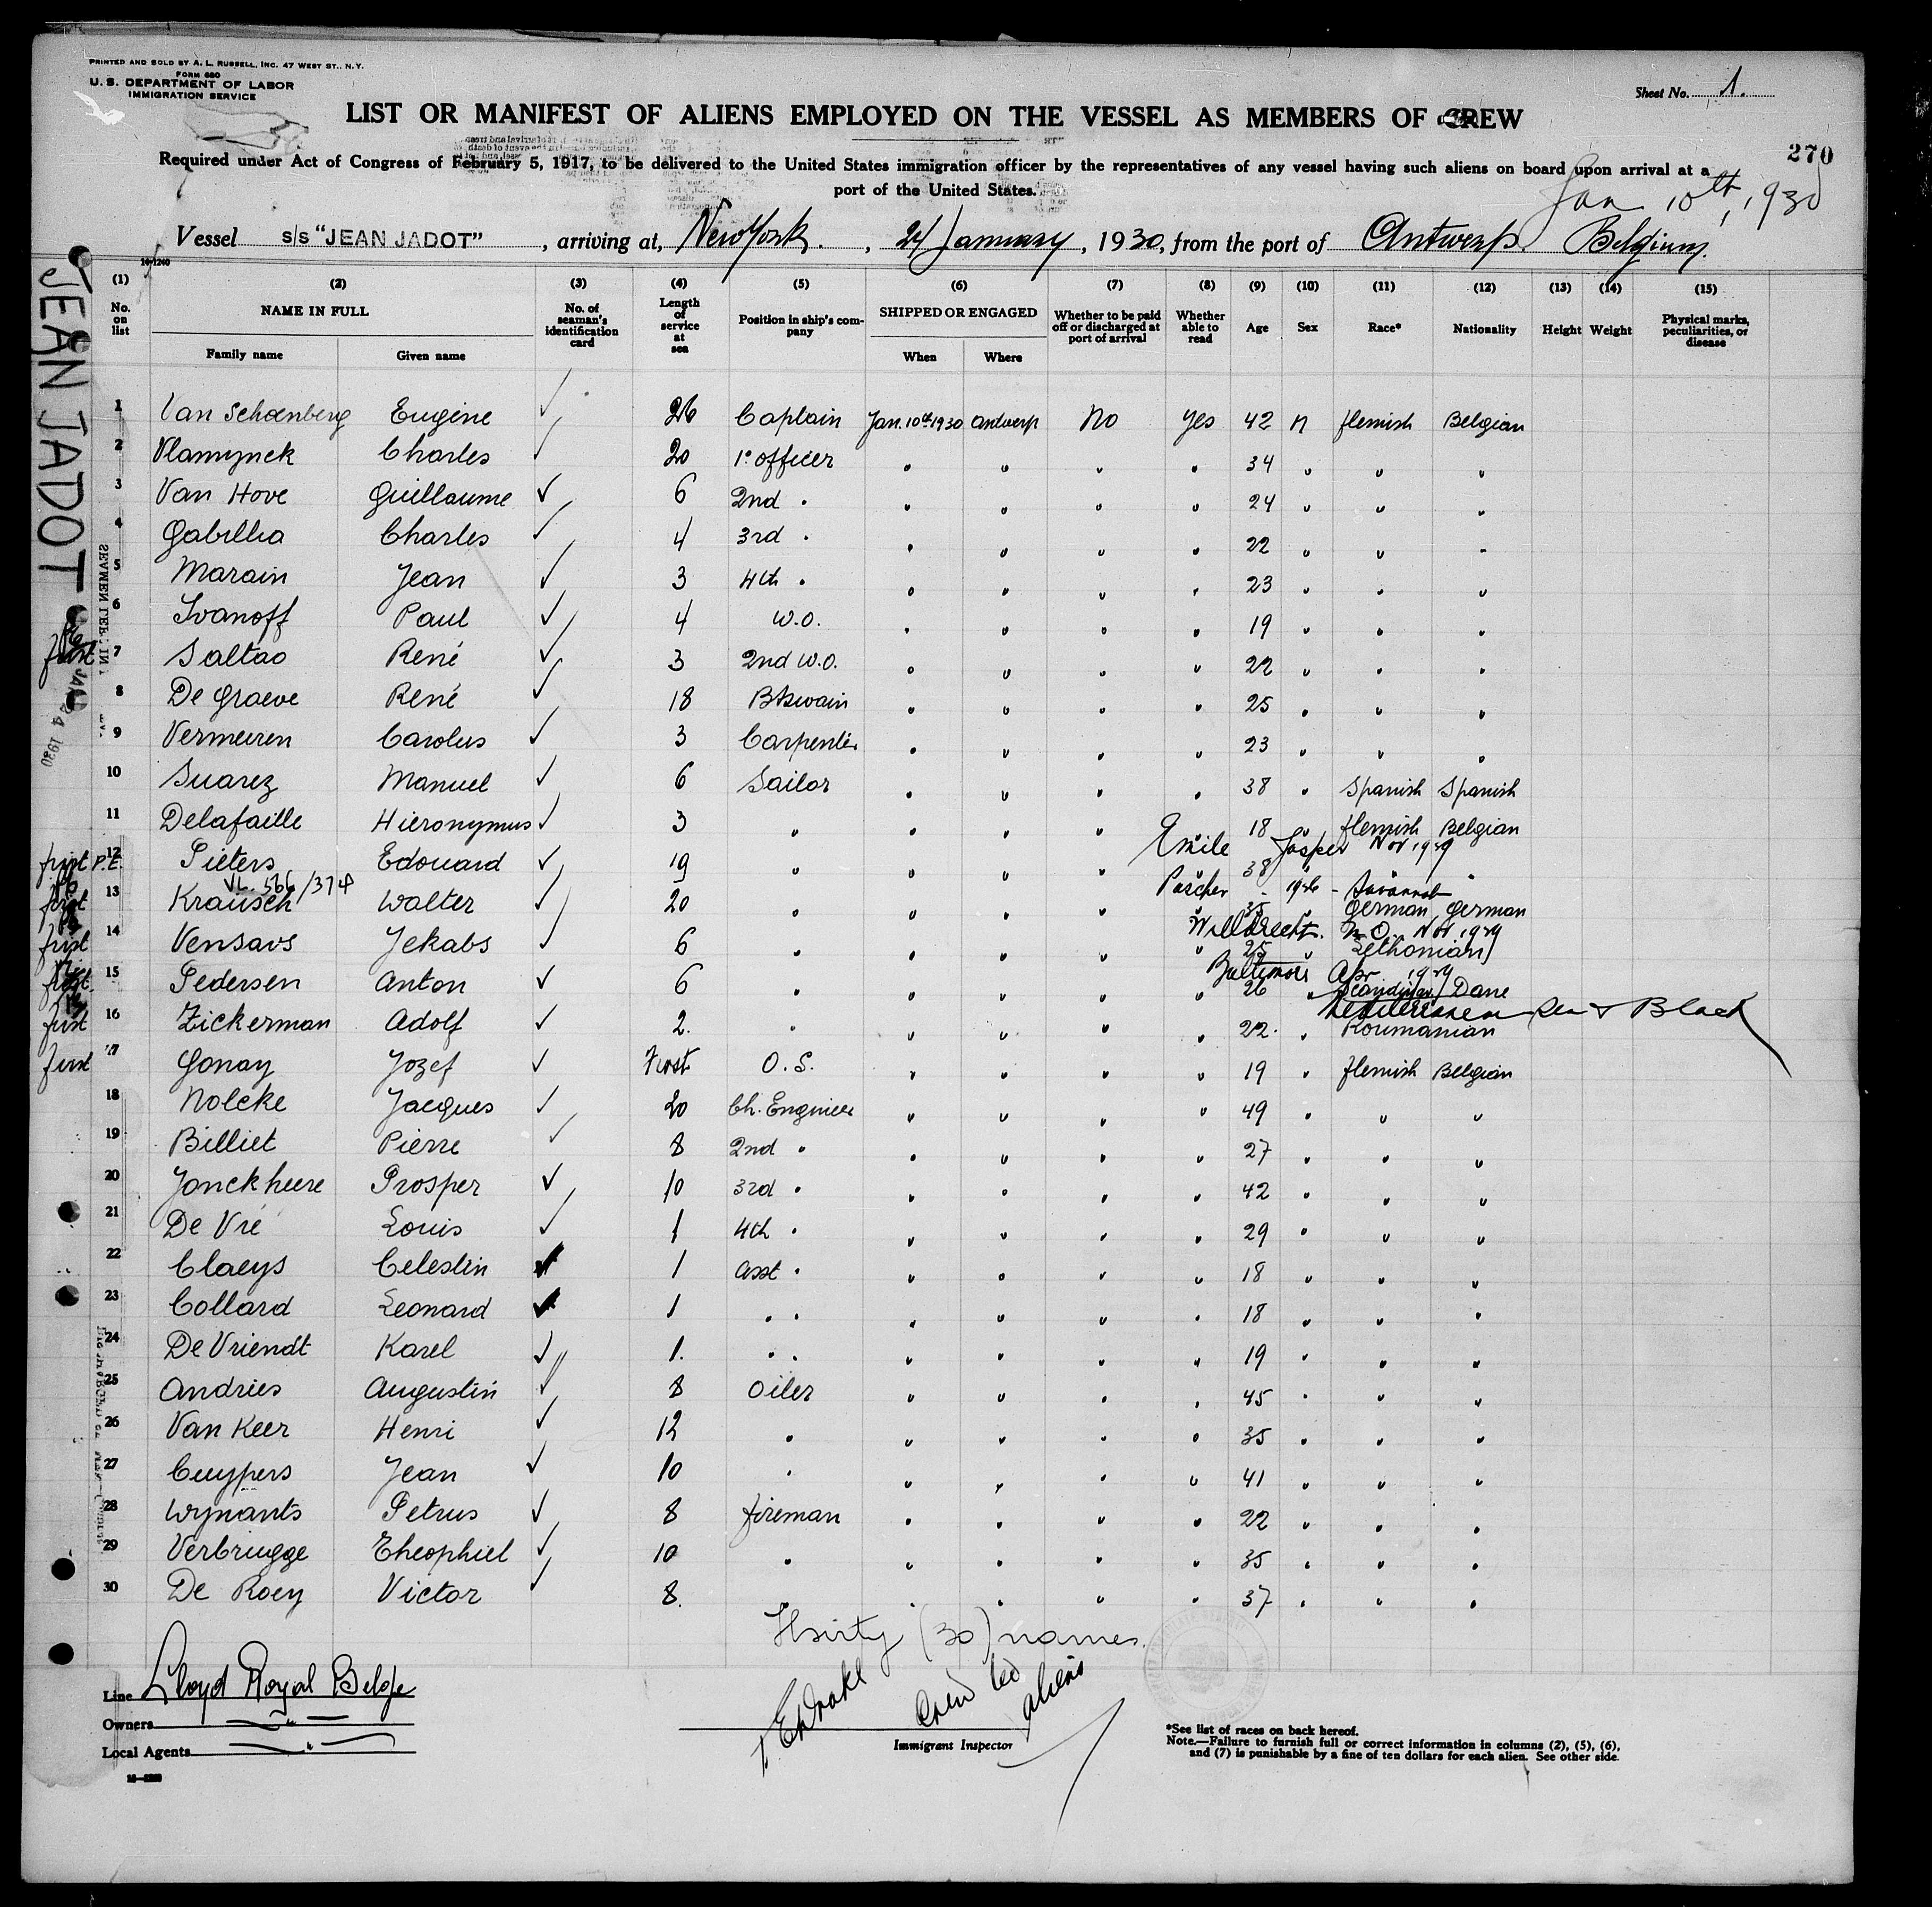 PRINTED AND SOLD BY A. L. RUSSELL, INC. 47 WEST ST., N.Y.
FORM 680
U. S. DEPARTMENT OF LABOR
IMMIGRATION SERVICE
Sheet No. 1.
LIST OR MANIFEST OF ALIENS EMPLOYED ON THE VESSEL AS MEMBERS OF CREW
270
Required under Act of Congress of February 5, 1917, to be delivered to the United States immigration officer by the representatives of any vessel having such aliens on board upon arrival at a
port of the United States.
Jan 10th, 1930
Vessel s/s "JEAN JADOT", arriving at, New York., 24 January, 1930, from the port of Antwerp. Belgium.
14-1240
JEAN JADOT
JAN 24 1930
(1) (2) (3) (4) (5) (6) (7) (8) (9) (10) (11) (12) (13) (14) (15)
No. on list NAME IN FULL Family name Given name No. of seaman's identification card Length of service at sea Position in ship's company SHIPPED OR ENGAGED When Where Whether to be paid off or discharged at port of arrival Whether able to read Age Sex Race* Nationality Height Weight Physical marks, peculiarities, or disease
1 Van Schoenberg Eugène ✓ 26 Captain Jan. 10th 1930 Antwerp No Yes 42 M flemish Belgian
2 Vlamynck Charles ✓ 20 1° officer " " " " 34 " " "
3 Van Hove Guillaume ✓ 6 2nd " " " " " 24 " " "
4 Gabillia Charles ✓ 4 3rd " " " " " 22 " " "
5 Marain Jean ✓ 3 4th " " " " " 23 " " "
6 Ivanoff Paul ✓ 4 W.O. " " " " 19 " " "
first 7 Saltao René ✓ 3 2nd W.O. " " " " 22 " " "
8 De Graeve René ✓ 18 Btswain " " " " 25 " " "
9 Vermeiren Carolus ✓ 3 Carpenter " " " " 23 " " "
10 Suarez Manuel ✓ 6 Sailor " " " " 38 " Spanish Spanish
11 Delafaille Hieronymus ✓ 3 " " " " " 18 " flemish Belgian
Emile Jasper Nov 1929
first P.E. 12 Pieters Edouard ✓ 19 " " " " " 38 " " "
VL. 566/374 Porcher - 1926 - Savannah
first 13 Krausch Walter ✓ 20 " " " " " 35 " German German
Willbrecht. N.O. Nov 1929
first 14 Vensavs Jekabs ✓ 6 " " " " " 25 " Lethonian
Baltimore Apr 1929
first 15 Pedersen Anton ✓ 6 " " " " " 26 " Scandinav/Dane
Mediterranean Sea & Black
first 16 Zickerman Adolf ✓ 2. " " " " " 22. " Roumanian
first 17 Gonay Jozef ✓ First O.S. " " " " 19 " flemish Belgian
18 Nolcke Jacques ✓ 20 Ch. Engineer " " " " 49 " " "
19 Billiet Pierre ✓ 8 2nd " " " " " 27 " " "
20 Jonckheere Prosper ✓ 10 3rd " " " " " 42 " " "
21 De Vré Louis ✓ 1 4th " " " " " 29 " " "
22 Claeys Celestin ✓ 1 Asst " " " " " 18 " " "
23 Collard Leonard ✓ 1 " " " " " " 18 " " "
24 De Vriendt Karel ✓ 1. " " " " " " 19 " " "
25 Andries Augustin ✓ 8 Oiler " " " " 45 " " "
26 Van Keer Henri ✓ 12 " " " " " 35 " " "
27 Cuypers Jean ✓ 10 " " " " " 41 " " "
28 Wynants Petrus ✓ 8 fireman " " " " 22 " " "
29 Verbrugge Theophiel ✓ 10 " " " " " 35 " " "
30 De Roey Victor ✓ 8. " " " " " 37 " " "
Thirty (30) names.
Line Lloyd Royal Belge
Owners — " —
Local Agents — " —
aliens
Immigrant Inspector
*See list of races on back hereof.
Note.—Failure to furnish full or correct information in columns (2), (5), (6),
and (7) is punishable by a fine of ten dollars for each alien. See other side.